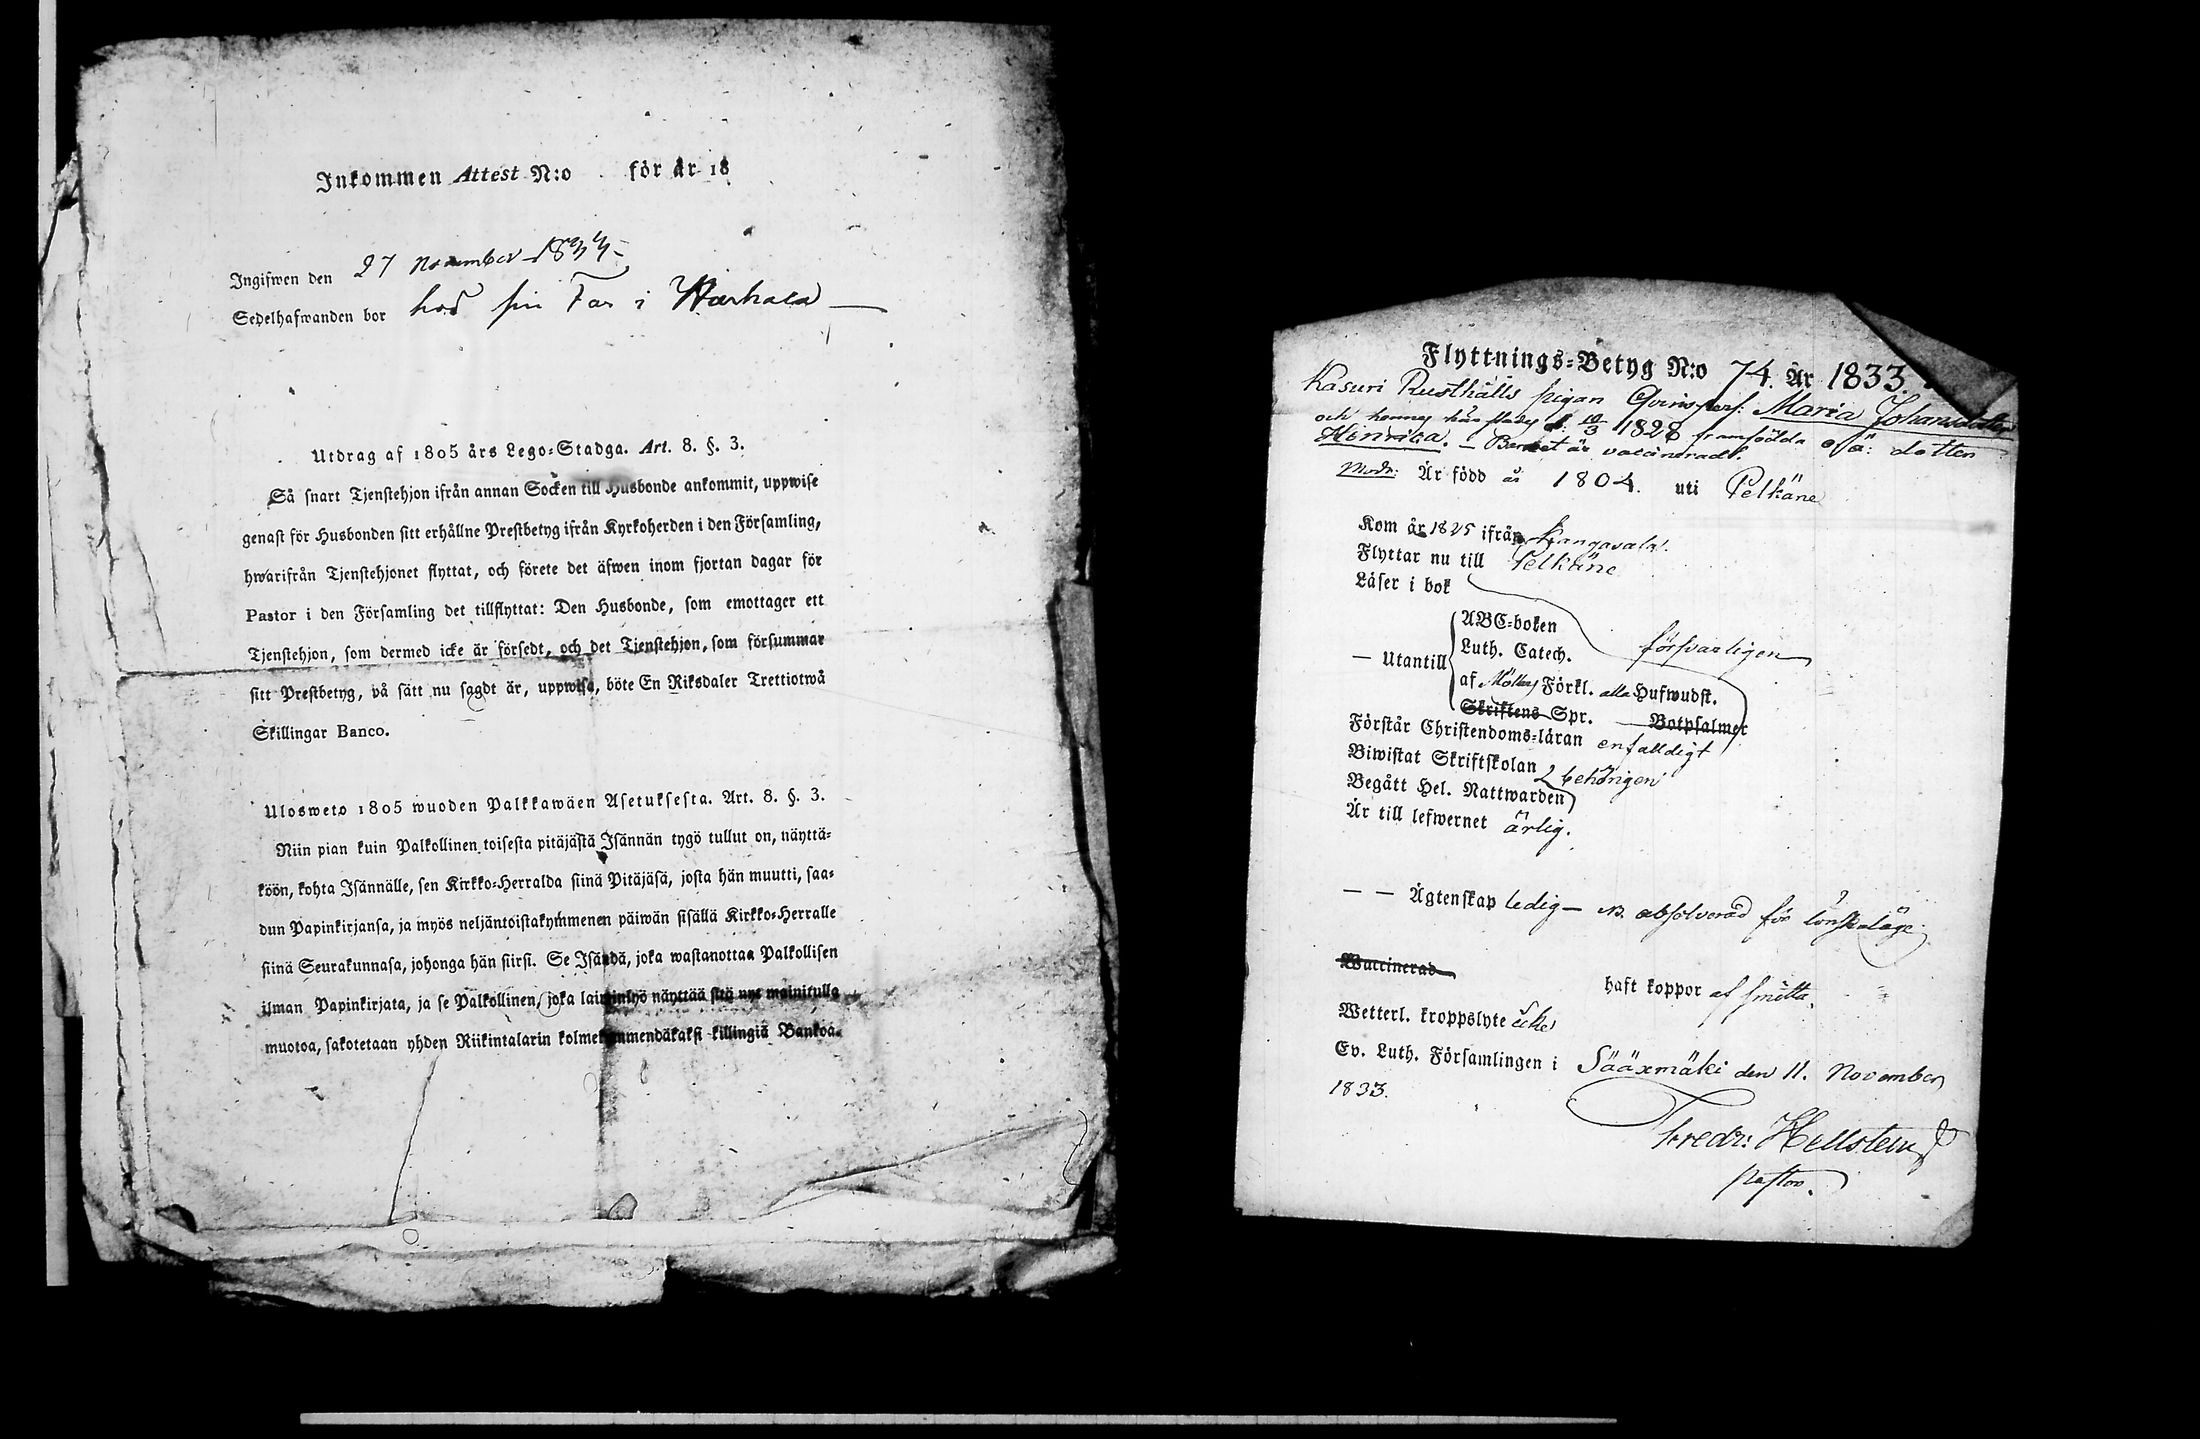 Inkommen Attest N:o för år 18
Ingifwen den 27 November 1833
Sedelhafwanden bor hos sin Far i Warhala
Utdrag af 1805 års Lego-Stadga. Art. 8. §. 3.
Så snart Tjenstehjon ifrån annan Socken till Husbonde ankommit, uppwise
genast för Husbonden sitt erhållne Prestbetyg ifrån Kyrkoherden i den Församling,
hwarifrån Tjenstehjonet flyttat, och förete det äfwen inom fjorton dagar för
Pastor i den Församling det tillflyttat: Den Husbonde, som emottager ett
Tjenstehjon, som dermed icke är försedt, och det Tjenstehjon, som försummar
sitt Prestbetyg, på sätt nu sagdt är, uppwisa, böte En Riksdaler Trettiotwå
Skillingar Banco.
Ulosweto 1805 wuoden Palkkawäen Asetuksesta. Art. 8. §. 3.
Niin pian kuin Palkollinen toisesta pitäjästä Isännän tygö tullut on, näyttä-
köön, kohta Isännälle, sen Kirkko-Herralda siinä Pitäjäsä, josta hän muutti, saa-
dun Papinkirjansa, ja myös neljäntoistakymmenen päiwän sisällä Kirkko-Herralle
siinä Seurakunnasa, johonga hän siirsi. Se Isändä, joka wastanottaa Palkollisen
ilman Papinkirjata, ja se Palkollinen, joka laiminlyö näyttää sitä nyt mainitulla
muotoa, sakotetaan yhden Riikintalarin kolmekymmendäkaksi killingiä Bankoa.
Flyttnings-Betyg N:o 74. År 1833.
Kasuri Rusthålls pigan Qvinspers: Maria Johansdotter
och hennes här städes d. 10/3 1828 framfödda oä: dotter
Henrica. – Barnet är vaccinerad.
Modr: Är född år 1804. uti Pelkäne
Kom år 1825 ifrån Kangasala.
Flyttar nu till Pelkäne
Läser i bok
ABC-boken
Luth. Catech. försvarligen
— Utantill
af Möllers Förkl. alla Hufwudst.
Skriftens Spr. Botpsalmer
Förstår Christendoms-läran enfaldigt
Biwistat Skriftskolan
Begått Hel. Nattwarden behörigen
Är till lefwernet ärlig.
— — Ägtenskap ledig — NB. absolverad för lönskaläge
Waccinerad haft koppor af smitta.
Wetterl. kroppslyte icke
Ev. Luth. Församlingen i Sääxmäki den 11. November
1833.
Fredr: Hellsten
Pastor.